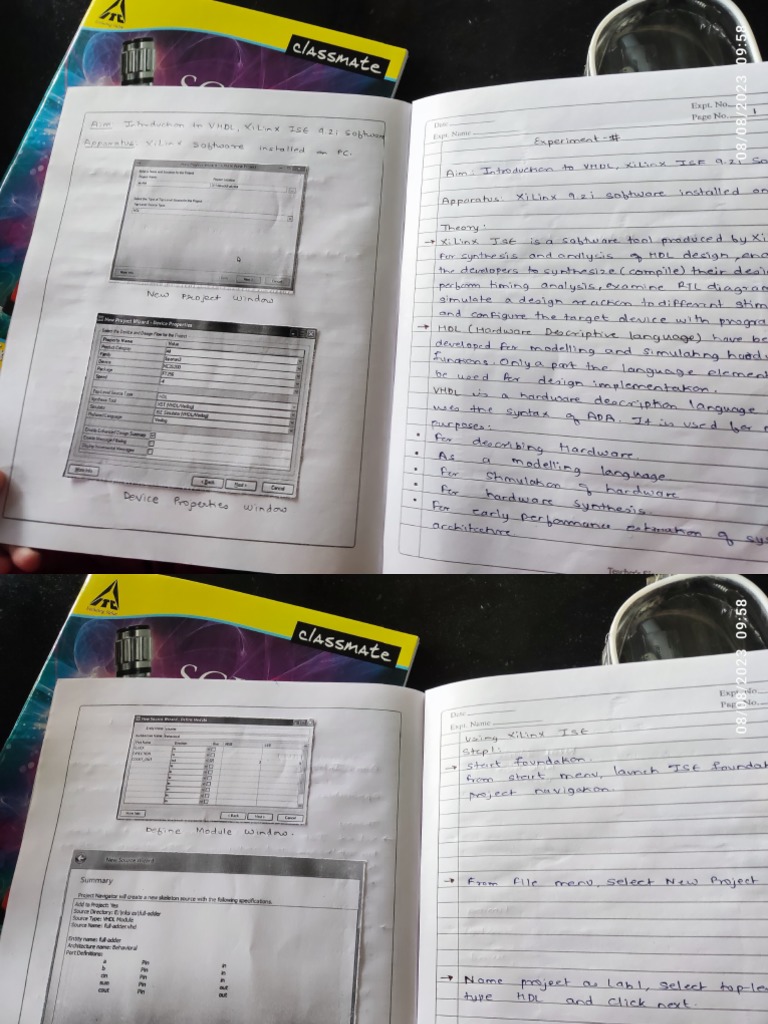 classmate
Aim: Introduction to VHDL, XiLinx ISE 9.2i Software
Apparatus: XiLinx Software installed on PC.
New Project Window
New Project Wizard - Device Properties
Select the Device and Design Flow for the Project
Property Name Value
Product Category All
Family
Device
Package
Speed
Top-Level Source Type HDL
Synthesis Tool XST (VHDL/Verilog)
Simulator ISE Simulator (VHDL/Verilog)
Preferred Language Verilog
Enable Enhanced Design Summary
Enable Message Filtering
Display Incremental Messages
More Info < Back Next > Cancel
Device Properties Window
Date
Expt. No.
Page No. 1
Expt. Name
08/08/2023 09:58
Experiment :- #
Aim: Introduction to VHDL, XiLinx ISE 9.2i
Apparatus: XiLinx 9.2i software installed
Theory:
→ XiLinx ISE is a software tool produced by
for synthesis and analysis of HDL design,
the developers to synthesize (compile) their
perform timing analysis, examine RTL
simulate a design reaction to different
and configure the target device with
→ HDL (Hardware Descriptive language) have
developed for modelling and simulating
functions. Only a part the language
be used for design implementation.
VHDL is a hardware description language
uses the syntax of ADA. It is used for
purposes:
• For describing Hardware.
• As a modelling language
• For stmulation of hardware
• For hardware synthesis.
• For early performance estimation of
architecture
classmate
New Source Wizard - Define Module
More Info < Back Next > Cancel
Define Module Window.
New Source Wizard
Summary
Project Navigator will create a new skeleton source with the following specifications.
Add to Project: Yes
Source Directory:
Source Type: VHDL Module
Source Name: full-adder.vhd
Entity name: full-adder
Architecture name: Behavioral
Port Definitions:
a Pin in
b Pin in
cin Pin in
sum Pin out
cout Pin out
Date
Expt. No.
Page No.
Expt. Name
08/08/2023 09:58
Using XiLinx ISE
Step1:
→ start foundation.
from start menu, launch ISE
project navigation.
→ From file menu, select New Project
→ Name project as Lab1, select
type HDL and click next.